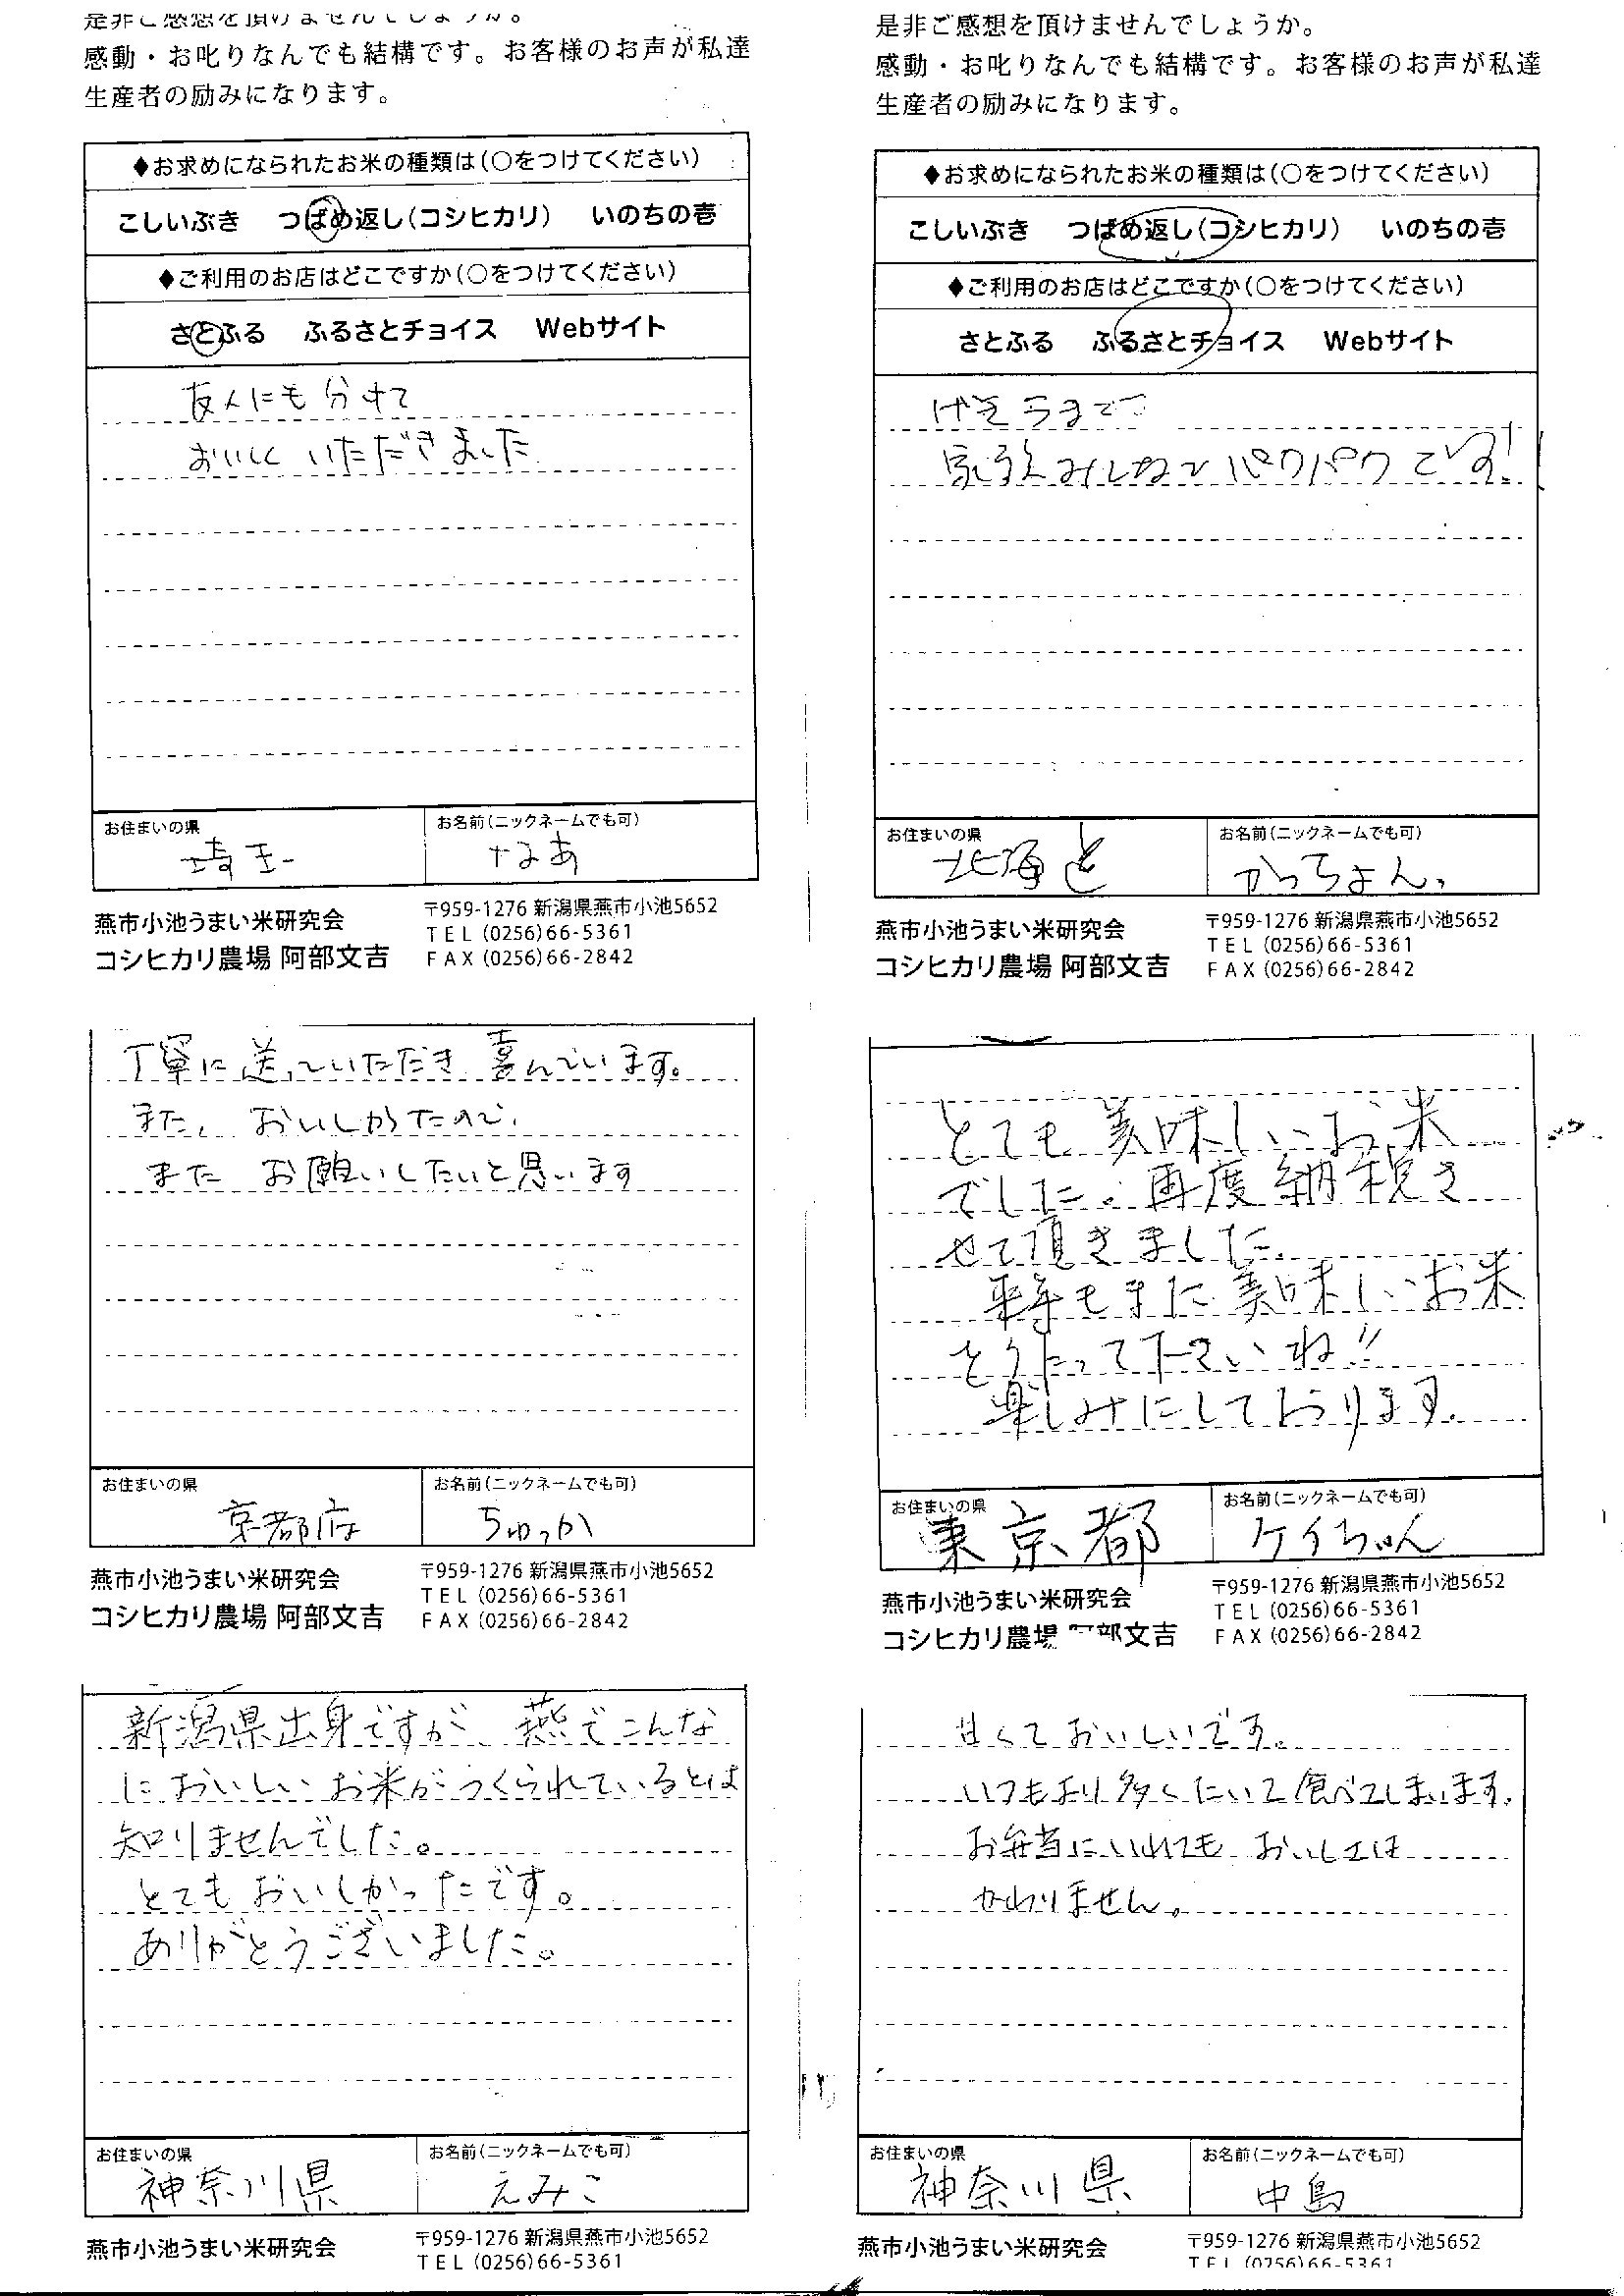 是非ご感想を頂けませんでしょうか。
感動・お叱りなんでも結構です。お客様のお声が私達
生産者の励みになります。
◆お求めになられたお米の種類は(○をつけてください)
こしいぶき つばめ返し(コシヒカリ) いのちの壱
◆ご利用のお店はどこですか(○をつけてください)
さとふる ふるさとチョイス Webサイト
友人にも分けて
おいしく いただきました
お住まいの県
埼玉
お名前(ニックネームでも可)
なあ
燕市小池うまい米研究会
コシヒカリ農場 阿部文吉
〒959-1276 新潟県燕市小池5652
TEL (0256)66-5361
FAX (0256)66-2842
是非ご感想を頂けませんでしょうか。
感動・お叱りなんでも結構です。お客様のお声が私達
生産者の励みになります。
◆お求めになられたお米の種類は(○をつけてください)
こしいぶき つばめ返し(コシヒカリ) いのちの壱
◆ご利用のお店はどこですか(○をつけてください)
さとふる ふるさとチョイス Webサイト
家族みんなでパクパクです!
お住まいの県
北海道
お名前(ニックネームでも可)
かっちょん
燕市小池うまい米研究会
コシヒカリ農場 阿部文吉
〒959-1276 新潟県燕市小池5652
TEL (0256)66-5361
FAX (0256)66-2842
丁寧に送っていただき 喜んでいます。
また、おいしかったので、
また お願いしたいと思います
お住まいの県
京都府
お名前(ニックネームでも可)
ちゅっか
燕市小池うまい米研究会
コシヒカリ農場 阿部文吉
〒959-1276 新潟県燕市小池5652
TEL (0256)66-5361
FAX (0256)66-2842
とても美味しいお米
でした。再度納税さ
せて頂きました。
来年もまた美味しいお米
をつくって下さいね!!
楽しみにしております。
お住まいの県
東京都
お名前(ニックネームでも可)
ケイちゃん
燕市小池うまい米研究会
コシヒカリ農場 阿部文吉
〒959-1276 新潟県燕市小池5652
TEL (0256)66-5361
FAX (0256)66-2842
新潟県出身ですが、燕でこんな
においしいお米がつくられているとは
知りませんでした。
とてもおいしかったです。
ありがとうございました。
お住まいの県
神奈川県
お名前(ニックネームでも可)
えみこ
燕市小池うまい米研究会
〒959-1276 新潟県燕市小池5652
TEL (0256)66-5361
甘くておいしいです。
いつもより多くたいて食べてしまいます。
お弁当にいれても おいしさは
かわりません。
お住まいの県
神奈川県
お名前(ニックネームでも可)
中島
燕市小池うまい米研究会
〒959-1276 新潟県燕市小池5652
TEL (0256)66-5361